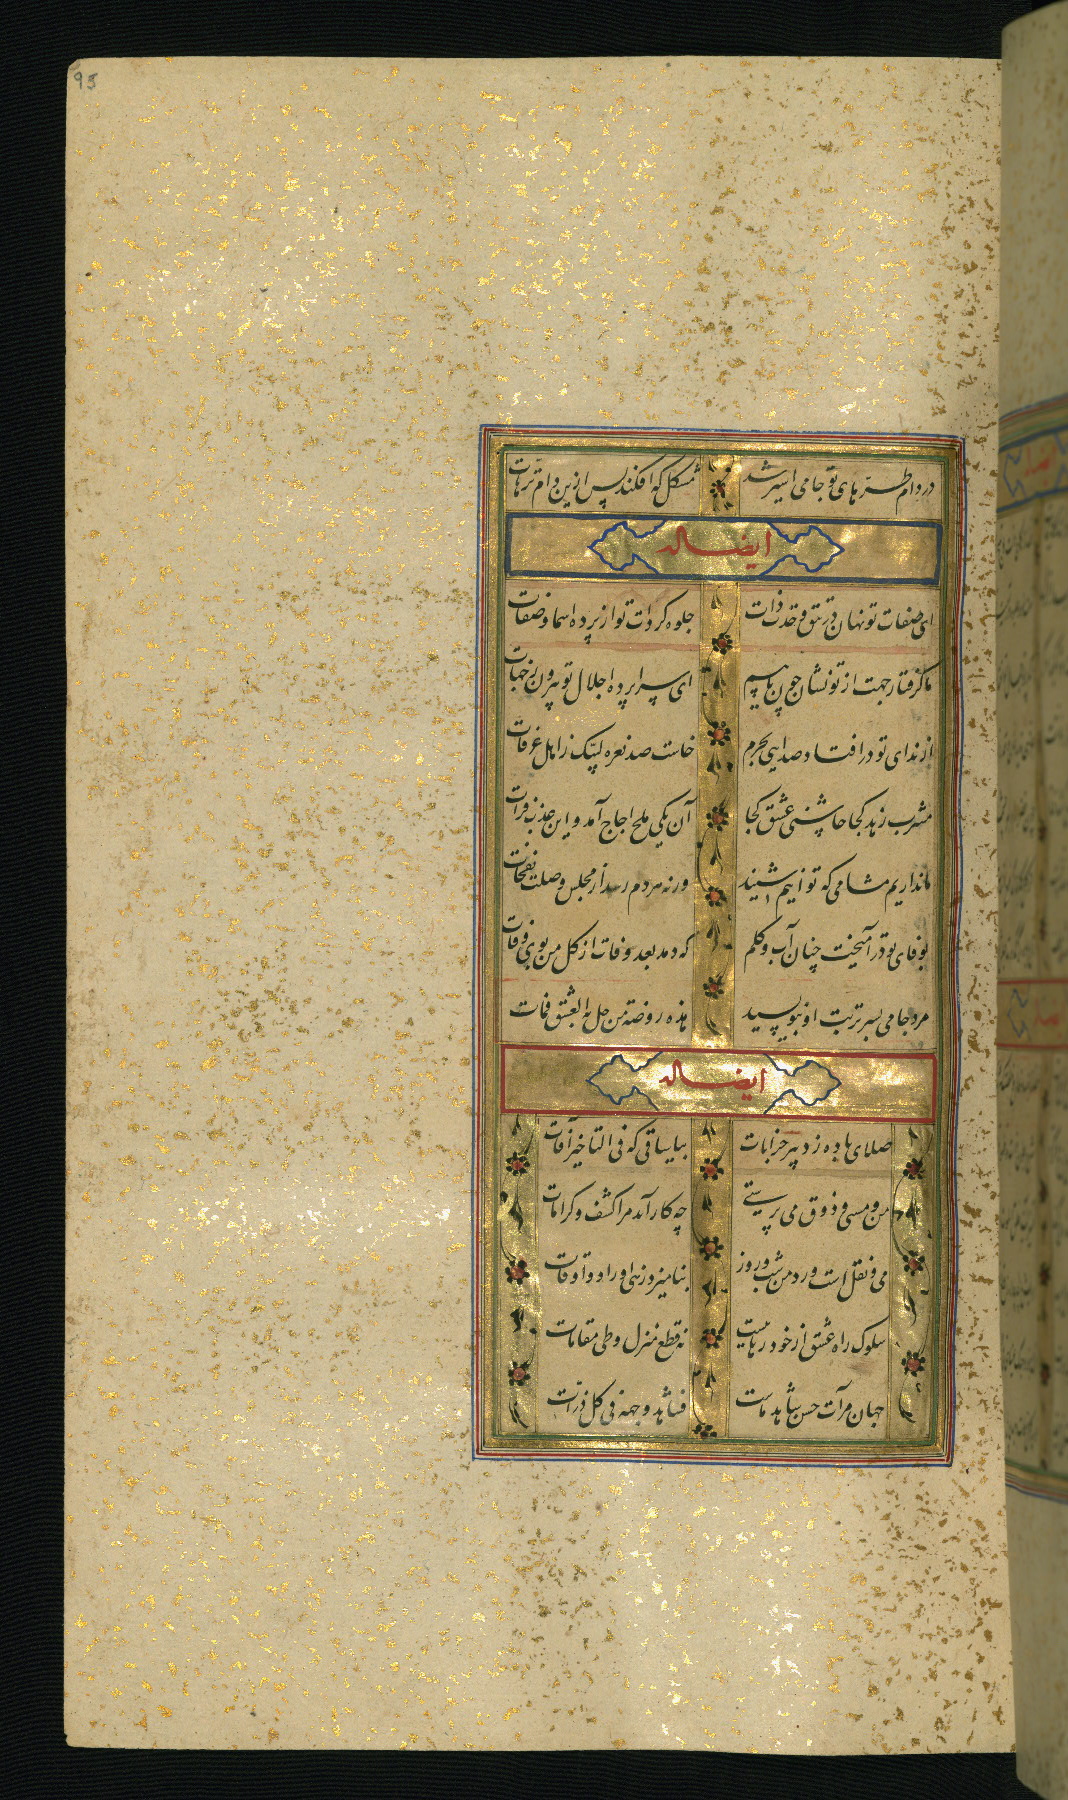 95
در دام طرّه های تو جامی اسیر شد
مشکل که افکند پس ازین دام ترّهات
ایضا له
ای صفات تو نهان در تتق وحدت ذات
جلوه کر ذات تو از پرده اسما و صفات
ما گرفتار جهت از تو نشان چون یابیم
ای سراپرده اجلال تو بیرون ز جهات
از ندای تو در افتاد صدایی بحرم
خاست صد نعره لبیک ز اهل عرفات
مشرب زهد کجا چاشنی عشق کجا
آن یکی ملح اجاج آمد و این عذب فرات
ما نداریم مشامی که توانیم شنید
ورنه هردم رسد از مجلس وصلت نفحات
بوفای تو در آمیخت چنان آب و کلم
که دمد بعد وفات از کل من بوی وفات
مرد جامی بسر تربت او بنویسید
هذه روضة من حل به العشق فمات
ایضا له
صلای باده زد پیر خرابات
بیا ساقی که فی التاخیر آفات
من و مستی و ذوق می پرستی
چه کار آید مرا کشف و کرامات
می و نقل است ورد من شب و روز
بنامیزد زهی اوراد و اوقات
سلوک راه عشق از خود رهاییست
نه قطع منزل و طی مقامات
جهان مرآت حسن شاهد ماست
فشاهد وجهه فی کل ذرات